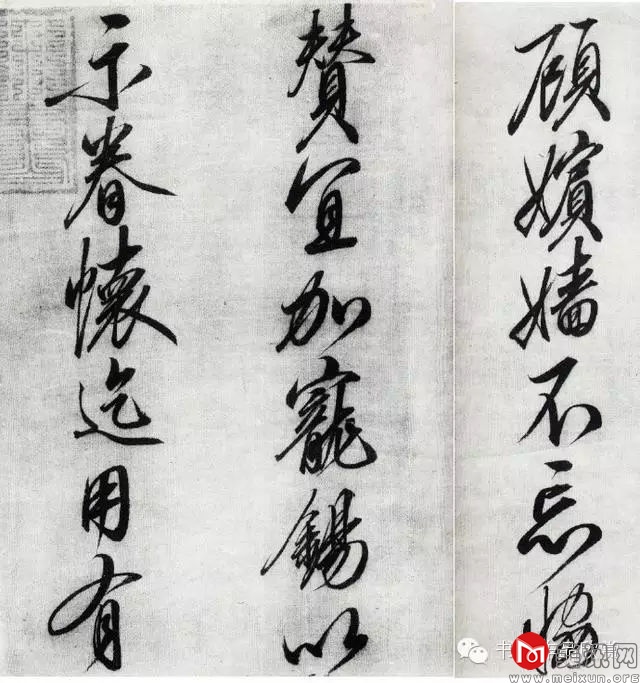 頋嬪嬙不忘恊
贊宜加寵錫以
示眷懷迄用有
www.meixun.org